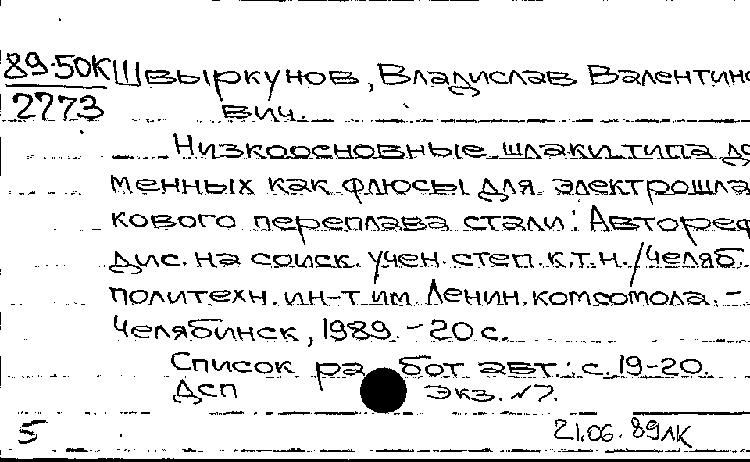 89-50К Швыркунов, Владислав Валентино
2773 вич.
Низкоосновные шлаки типа до
менных как флюсы для электрошла
кового переплава стали: Автореф
дис. на соиск. учен. степ. к.т.н. / Челяб.
политехн. ин-т им. Ленин. комсомола. -
Челябинск, 1989. - 20 с.
Список работ авт.: с. 19-20.
Дсп Экз. №7.
5 21.06.89 ЛК